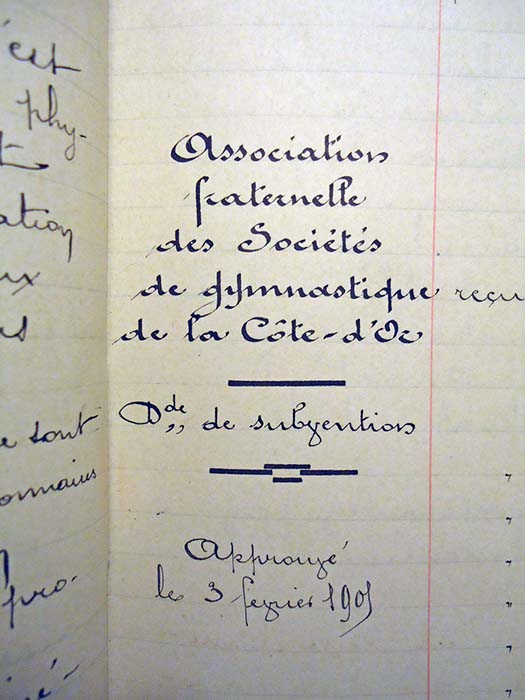 est
phy-
t
ation
ux
Association
fraternelle
des Sociétés
de gymnastique reçu
de la Côte-d'Or
Dde de subvention
e sont
pro-
Approuvé
le 3 février 1905